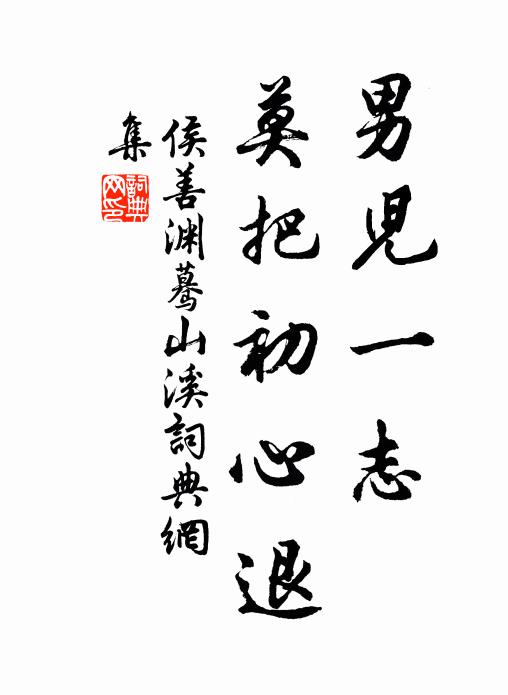 男兒一志
莫把初心退
侯善渊蓦山溪詞典網
集
詞典
网印